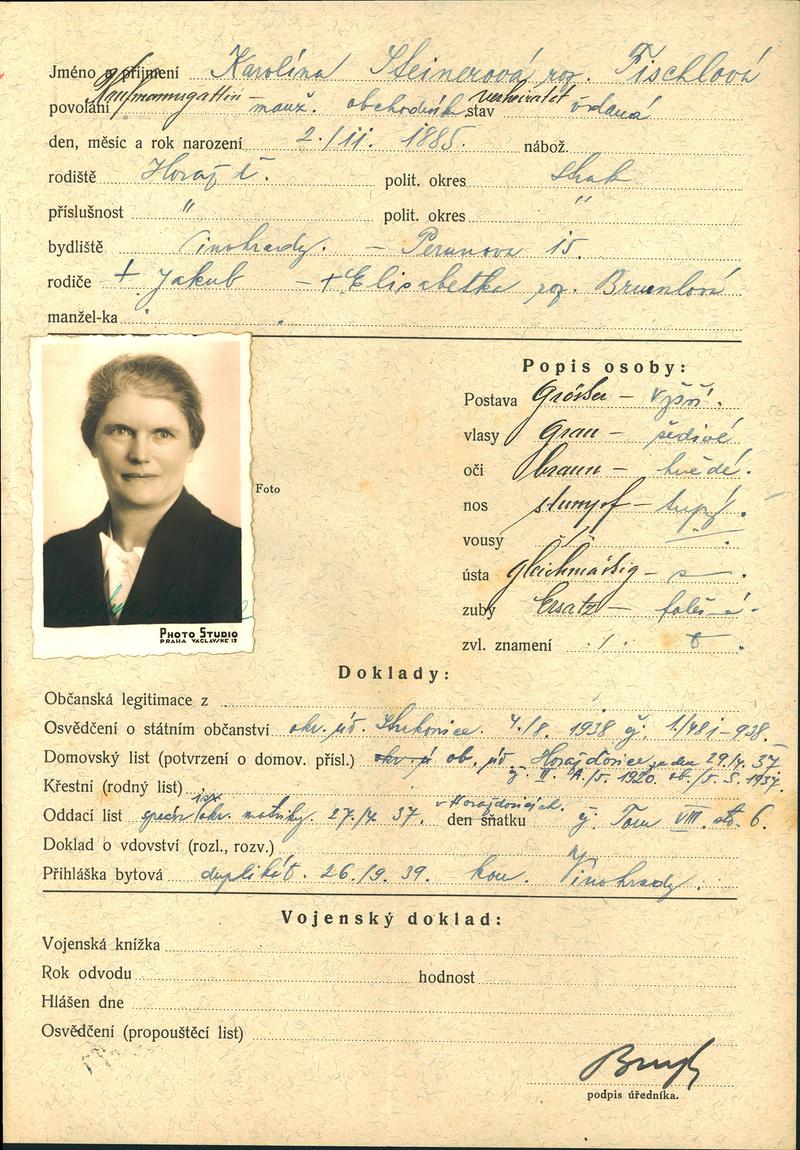 Jméno a příjmení Karolína Steinerová roz. Fischlová
Kaufmannsgattin verheiratet
povolání manž. obchodník stav vdaná
den, měsíc a rok narození 2./11. 1885. nábož.
rodiště Horažď. polit. okres Strak
příslušnost " polit. okres "
bydliště Vinohrady. – Perunova 15.
rodiče + Jakub – + Elisabetha roz.
manžel-ka
Popis osoby:
Postava Grösser – vyšší.
vlasy Grau – šedivé
oči braun – hnědé.
Foto
nos stumpf – tupý.
vousy
ústa gleichmässig –
zuby Ersatz – falš
zvl. znamení
PHOTO STUDIO
PRAHA VÁCLAVSKÉ 15
Doklady:
Občanská legitimace z
Osvědčení o státním občanství okr. úř. Strakonice. 4./8. 1938 čj. 1/481-938.
Domovský list (potvrzení o domov. přísl.) ob. úř. Horažďovice ze dne 29./4. 37
čj. II. A./5. 1920. 1937.
Křestní (rodný list)
Oddací list okr. matriky. 27./4. 37. v Horažďovicích. den sňatku čj. Tom VIII. str. 6.
Doklad o vdovství (rozl., rozv.)
Přihláška bytová duplikát. 26./9. 39. kom. Vinohrady.
Vojenský doklad:
Vojenská knížka
Rok odvodu hodnost
Hlášen dne
Osvědčení (propouštěcí list)
podpis úředníka.